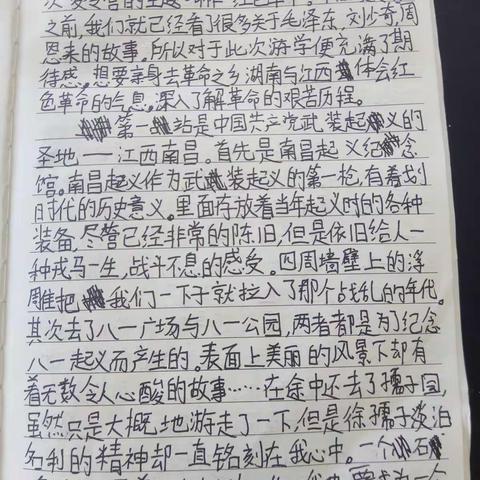 之前,我们就已经看了很多关于毛泽东、刘少奇、周
恩来的故事。所以对于此次游学便充满了期
待感。想要亲身去革命之乡湖南与江西体会红
色革命的气息。深入了解革命的艰苦历程。
第一站是中国共产党武装起义的
圣地——江西南昌。首先是南昌起义纪念
馆。南昌起义作为武装起义的第一枪,有着划
时代的历史意义。里面存放着当年起义时的各种
装备,尽管已经非常的陈旧,但是依旧给人一
种戎马一生,战斗不息的感受。四周墙壁上的浮
雕把我们一下子就拉入了那个战乱的年代。
其次去了八一广场与八一公园,两者都是为了纪念
八一起义而产生的。表面上美丽的风景下却有
着无数令人心酸的故事……在途中还去了孺子园,
虽然只是大概地游走了一下,但是徐孺子淡泊
名利的精神却一直铭刻在我心中。一个石